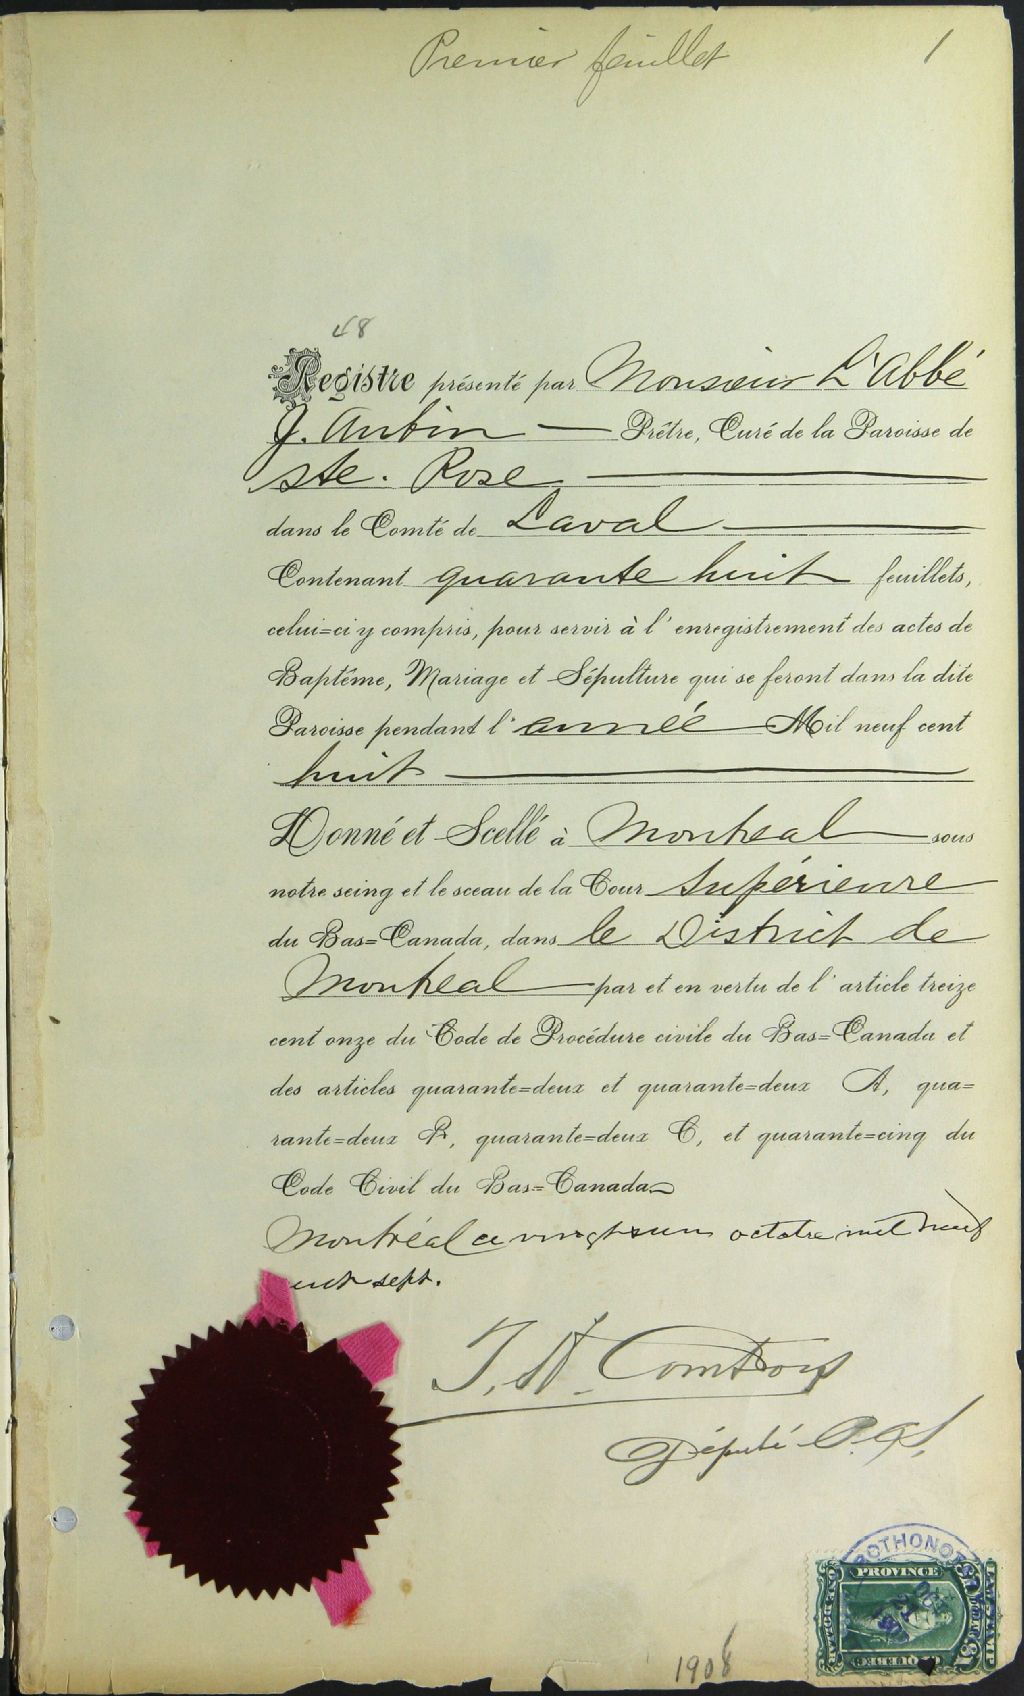 Premier feuillet 1
48
Registre présenté par Monsieur L'Abbé
J. Aubin — Prêtre, Curé de la Paroisse de
Ste. Rose
dans le Comté de Laval
Contenant quarante huit feuillets,
celui=ci y compris, pour servir à l'enregistrement des actes de
Baptême, Mariage et Sépulture qui se feront dans la dite
Paroisse pendant l'année Mil neuf cent
huit
Donné et Scellé à Montreal sous
notre seing et le sceau de la Cour Supérieure
du Bas=Canada, dans le District de
Montreal par et en vertu de l'article treize
cent onze du Code de Procédure civile du Bas=Canada et
des articles quarante=deux et quarante=deux A, qua=
rante=deux B, quarante=deux C, et quarante=cinq du
Code Civil du Bas=Canada
Montréal ce vingt un octobre mil neuf
cent sept.
J. N. Comtrois
Député P.C.S.
PROTHONOT
PROVINCE
QUEBEC
OCT
21
LAW STAMP
ONE DOLLAR
1908